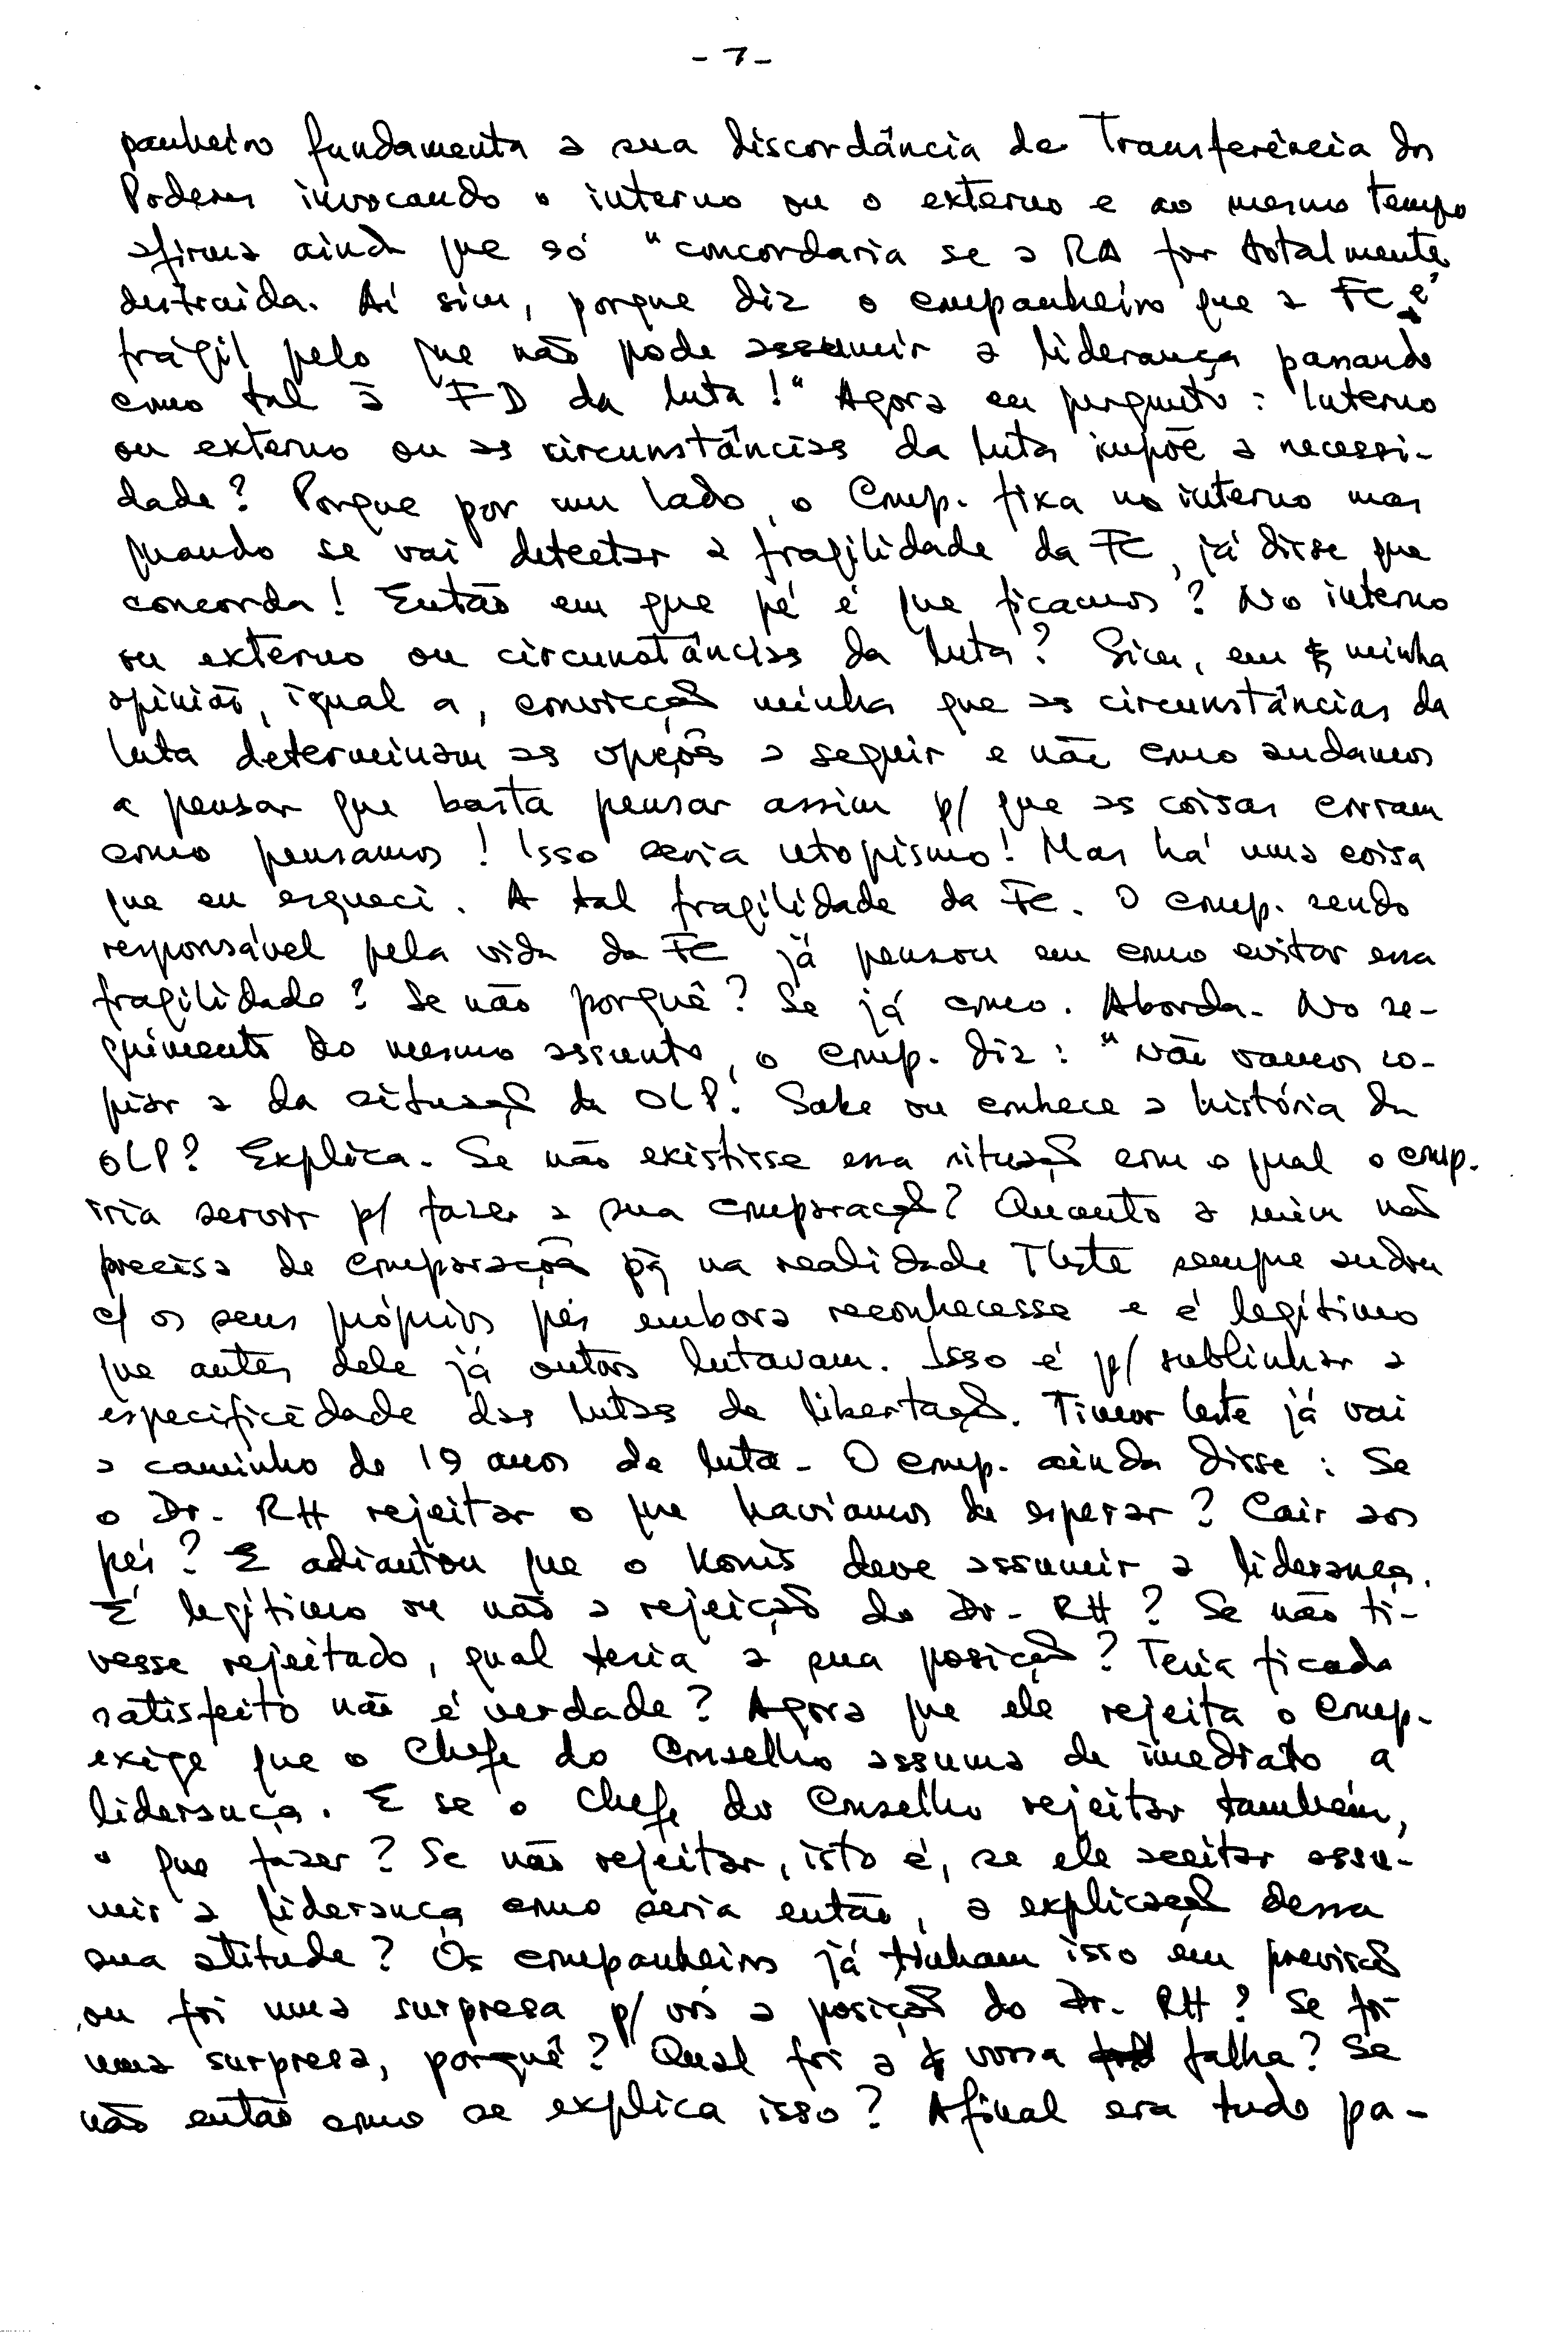 - 7 -
panheiro fundamenta a sua discordância de Transferência dos
Poderes invocando o interno ou o externo e ao mesmo tempo
afirma ainda que só "concordaria se a RA for totalmente
destraída. Aí sim, porque diz o companheiro que a FC é
frágil pelo que não pode assumir a liderança passando
como tal à FD da luta!" Agora eu pergunto: Interno
ou externo ou as circunstâncias da luta impõe a necessi-
dade? Porque por um lado, o Comp. fixa no interno mas
quando se vai detectar a fragilidade da FC, já disse que
concorda! Então em que pé é que ficamos? No interno
ou externo ou circunstâncias da luta? Sim, em minha
opinião, igual a, convicção minha que as circunstâncias da
luta determinam as opções a seguir e não como andamos
a pensar que basta pensar assim p/ que as coisas corram
como pensamos! Isso seria utopismo! Mas há uma coisa
que eu esqueci. A tal fragilidade da FC. O comp. sendo
responsável pela vida da FC já pensou em como evitar essa
fragilidade? Se não porquê? Se já como. Aborda. No se-
guimento do mesmo assunto, o comp. diz: "Não vamos co-
piar a da situação da OLP". Sabe ou conhece a história da
OLP? Explica. Se não existisse essa situação com o qual o comp.
iria servir p/ fazer a sua comparação? Quanto a mim não
precisa de comparação pq na realidade TLste sempre andou
c/ os seus próprios pés embora reconhecesse e é legítimo
que antes dele já outros lutavam. Isso é p/ sublinhar a
especificidade das lutas de libertação. Timor Leste já vai
a caminho de 19 anos de luta. O comp. ainda disse: Se
o Dr. RH rejeitar o que havíamos de esperar? Cair aos
pés? E adiantou que o Konis deve assumir a liderança.
É legítimo ou não a rejeição do Dr. RH? Se não ti-
vesse rejeitado, qual teria a sua posição? Teria ficado
satisfeito não é verdade? Agora que ele rejeita o Comp.
exige que o Chefe do Conselho assuma de imediato a
liderança. E se o Chefe do Conselho rejeitar também,
o que fazer? Se não rejeitar, isto é, se ele aceitar assu-
mir a liderança como seria então, a explicação dessa
sua atitude? Os companheiros já tinham isso em previsão
ou foi uma surpresa p/ vós a posição do Dr. RH? Se foi
uma surpresa, porquê? Qual foi a vossa falha? Se
não então como se explica isso? Afinal era tudo pa-